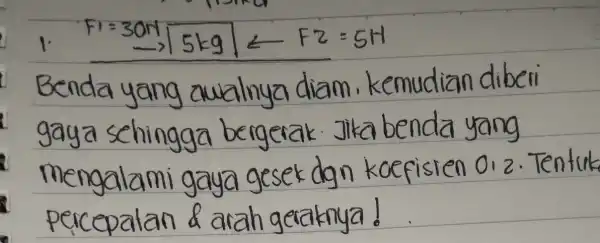 1. F1 = 30N → 5kg ← F2 = 5N
Benda yang awalnya diam, kemudian diberi
gaya sehingga bergerak. Jika benda yang
mengalami gaya gesek dgn koefisien 0,2. Tentuk
percepatan & arah geraknya!